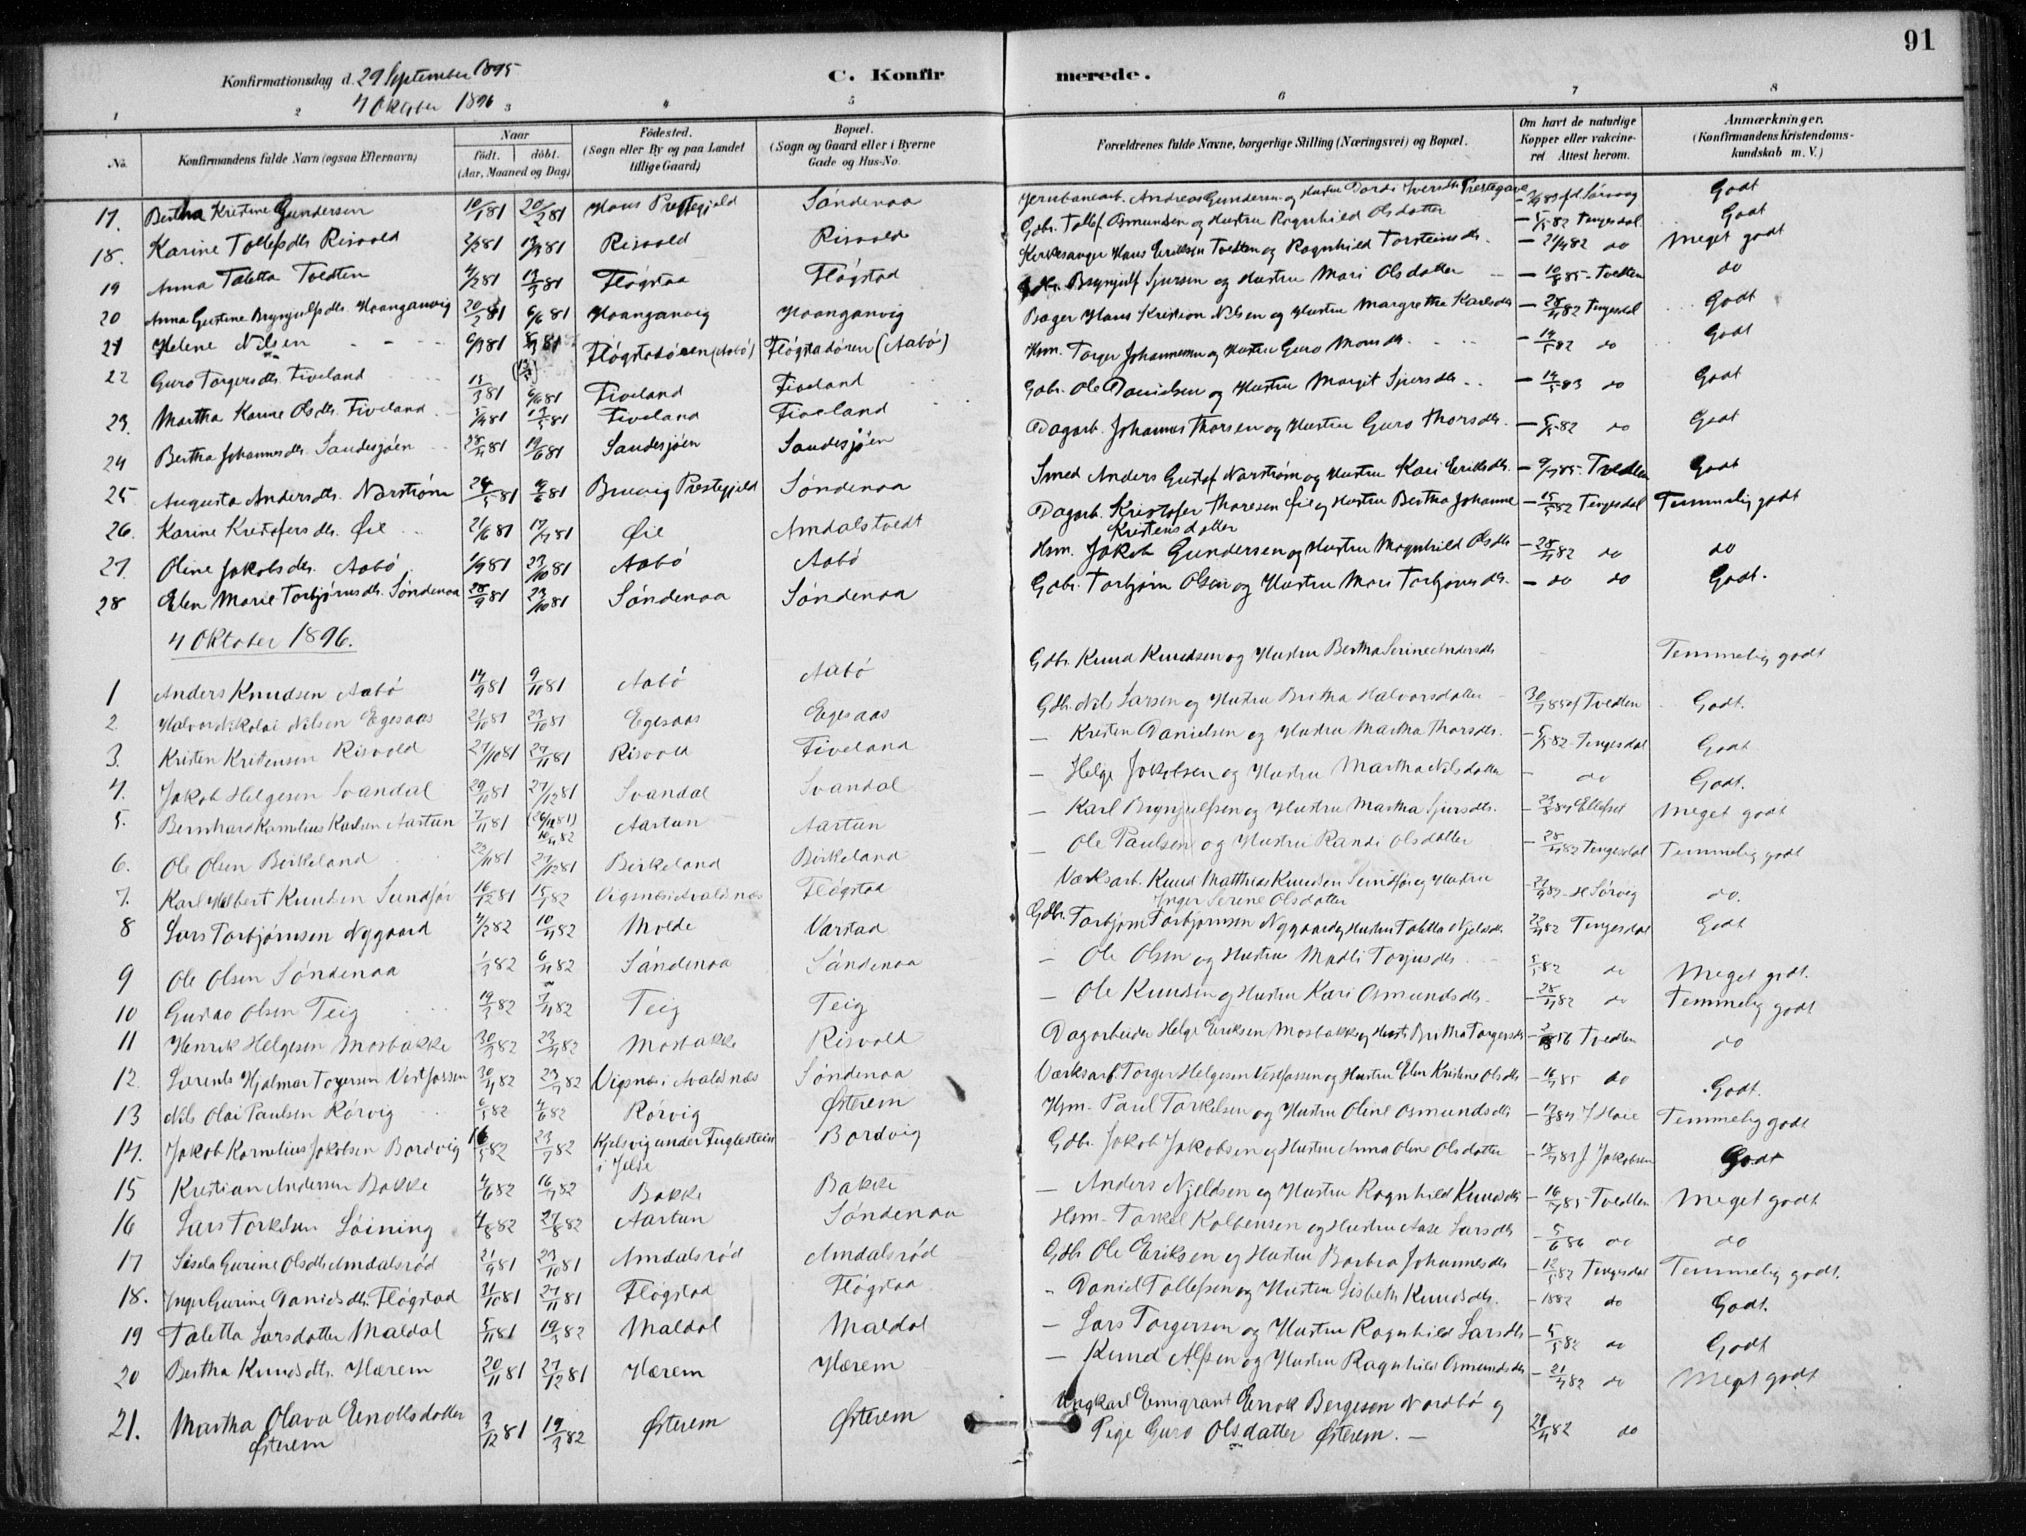 91
Konfirmationsdag d. 29 September 1895
4 Oktober 1896
C. Konfirmerede.
1 2 3 4 5 6 7 8
No. Konfirmandens fulde Navn (ogsaa Efternavn) Naar født. døbt. (Aar, Maaned og Dag) Fødested. (Sogn eller By og paa Landet tillige Gaard) Bopæl. (Sogn og Gaard eller i Byerne Gade og Hus-No. Forældrenes fulde Navne, borgerlige Stilling (Næringsvei) og Bopæl. Om havt de naturlige Kopper eller vakcineret Attest herom. Anmærkninger. (Konfirmandens Kristendomskundskab m. V.)
17. Bertha Kristine Gundersen 10/1 81 20/2 81 Haus Prestegjeld Søndenaa Jernbanearb. Andreas Gundersen og Hustru Godt
18. Karine Tollefsdtr. Risvold 2/2 81 13/3 81 Risvold Risvold Gdbr. Tollef Osmundsen og Hustru Ragnhild Olsdatter - 5/5 82 Tengesdal Godt
19 Anna Taletta Tvedten 4/2 81 13/3 81 Fløgstad Fløgstad Kirkesanger Hans Eriksen Tvedten og Ragnhild Torsteinsdtr. - 21/4 82 do Meget godt
20 Anna Gurine Brynjulfsdtr. Hoanganvig 20/2 81 6/6 81 Hoanganvig Hoanganvig Gdbr. Brynjulf Sjursen og Hustru Mari Olsdatter - 10/8 85 - Tvedten do
21 Helene Nilsen 6/3 81 8/5 81 Fløgstadøren (Aabø) Fløgstadøren (Aabø) Bager Hans Kristian Nilsen og Hustru Margrethe Karlsdtr - 28/4 82 Tengesdal Godt
22 Guro Torgersdtr. Fiveland 13/3 81 6/6 81 Fiveland Fiveland Hsm. Torger Johannesen og Hustru Guro Monsdtr. - 14/5 82 do Godt
23. Martha Karine Olsdtr. Fiveland 5/4 81 13/5 81 Fiveland Fiveland Gdbr. Ole Danielsen og Hustru Margit Sjursdtr. - 14/5 83 do Godt
24 Bertha Johannesdtr. Sandesjøen 28/4 81 19/6 81 Sandesjøen Sandesjøen Dagarb. Johannes Thorsen og Hustru Guro Thorsdtr. - 5/5 82 do Godt
25. Augusta Andersdtr. Narstrøm 24/5 81 4/6 81 Bruvig Prestegjeld Søndenaa Smed Anders Gustaf Narstrøm og Hustru Kari Eriksdtr. - 9/7 85 - Tvedten Godt
26. Karine Kristofersdtr. Øie 21/6 81 17/7 81 Øie Amdalstvedt Dagarb. Kristofer Thoresen Øie og Hustru Bertha Johanne Kristensdatter - 15/5 82 Tengesdal Temmelig godt
27. Oline Jakobsdtr. Aabø 1/9 81 23/10 81 Aabø Aabø Hsm. Jakob Gundersen og Hustru Magnhild Olsdtr - 28/4 82 do do
28 Elen Marie Torbjørnsdtr. Søndenaa 28/9 81 23/10 81 Søndenaa Søndenaa Gdbr. Torbjørn Olsen og Hustru Mari Torbjørnsdtr. - do do Godt.
4 Oktober 1896.
1 Anders Knudsen Aabø 14/9 81 9/10 81 Aabø Aabø Gdbr. Knud Knudsen og Hustru Bertha Serine Andersdtr Temmelig godt
2 Halvor Nikolai Nilsen Egesaas 2/10 81 23/10 81 Egesaas Egesaas Gdbr. Nils Larsen og Hustru Britha Halvorsdatter 30/7 85 af Tvedten Godt.
3. Kristen Kristensen Risvold 27/10 81 27/11 81 Risvold Fiveland - Kristen Danielsen og Hustru Martha Thorsdtr. - 5/5 82 - Tengesdal Godt
4. Jakob Helgesen Svandal 29/10 81 27/12 81 Svandal Svandal - Helge Jakobsen og Hustru Martha Nilsdatter - do Godt.
5. Bernhard Kornelius Karlsen Aartun 7/11 81 (26/12 81) Aartun Aartun - Karl Brynjulfsen og Hustru Martha Sjursdtr. Meget godt
6. Ole Olsen Birkeland 23/11 81 27/12 81 Birkeland Birkeland - Ole Paulsen og Hustru Randi Olsdatter - 28/4 82 Tengesdal Temmelig godt
7. Karl Albert Knudsen Sundfør 16/12 81 15/1 82 Vigsnæs i Avaldsnæs Fløgstad Værksarb. Knud Matthias Knudsen Sundfør og Hustru Inger Serine Olsdatter do.
8 Lars Torbjørnsen Nygaard 4/2 82 10/4 82 Molde Varstad Gdbr. Torbjørn Torbjørnsen Nygaard og Hustru Taletta Njelsdtr 22/4 82 Tengesdal Godt
9 Ole Olsen Søndenaa 1/3 82 6/4 82 Søndenaa Søndenaa - Ole Olsen og Hustru Madli Torgersdtr. 5/5 82 do Meget godt.
10 Olsen Teig 19/3 82 7/4 82 Teig Teig - Ole Knudsen og Hustru Kari Osmundsdtr. - 28/4 82 do Temmelig godt
11 Henrik Helgesen Mosbakke 30/3 82 23/4 82 Mosbakke Risvold Dagarbeider Helge Eriksen Mosbakke og Hust. Britha Torgersdtr Tvedten do
12. Laurents Hjalmar Torgersen Vestfossen 30/4 82 23/7 82 Vigsnæs i Avaldsnæs Søndenaa Værksarb. Torger Helgesen Vestfossen og Hustru Elen Kristine Olsdtr - 16/7 85 do Godt.
13 Nils Olai Paulsen Rørvig 6/5 82 4/6 82 Rørvig Østerem Hsm. Paul Torkelsen og Hustru Oline Osmundsdtr Temmelig godt
14. Jakob Kornelius Jakobsen Bordvig 16/5 82 23/7 82 Kjelsvig under Fuglestein i Jelse Bordvig Gdbr. Jakob Jakobsen og Hustru Anna Oline Olsdatter J Jakobsen Godt
15 Kristian Andersen Bakke 4/6 82 16/7 82 Bakke Bakke - Anders Njeldsen og Hustru Ragnhild Knudsdtr - 16/7 85 - Tvedten Meget godt
16 Lars Torkelsen Løining 4/8 82 27/8 82 Aartun Søndenaa Hsm. Torkel Kolbensen og Hustru Aase Larsdtr - 5/6 86 do do
17 Sisela Gurine Olsdtr Amdalsrød 21/9 81 23/10 81 Amdalsrød Amdalsrød Gdbr Ole Eriksen og Hustru Barbra Johannesdtr - 12/5 82 Tengesdal Temmelig godt.
18. Inger Gurine Danielsdtr. Fløgstad 31/10 81 27/11 81 Fløgstad Fløgstad - Daniel Tollefsen og Hustru Lisbeth Knudsdtr. - 1882 do Godt.
19 Taletta Larsdatter Maldal 5/11 81 19/3 82 Maldal Maldal - Lars Torgersen og Hustru Ragnhild Larsdtr - 5/5 82 do Godt
20 Bertha Knudsdtr. Hærem 20/11 81 27/12 81 Hærem Hærem - Knud Alfsen og Hustru Ragnhild Osmundsdtr - 21/4 82 do Meget godt
21. Martha Olava Enoksdatter Østerem 3/12 81 19/3 82 Østerem Østerem Ungkarl Emigrant Enok Bergesen Nordbø og Pige Guro Olsdatter Østerem. - 28/4 82 do